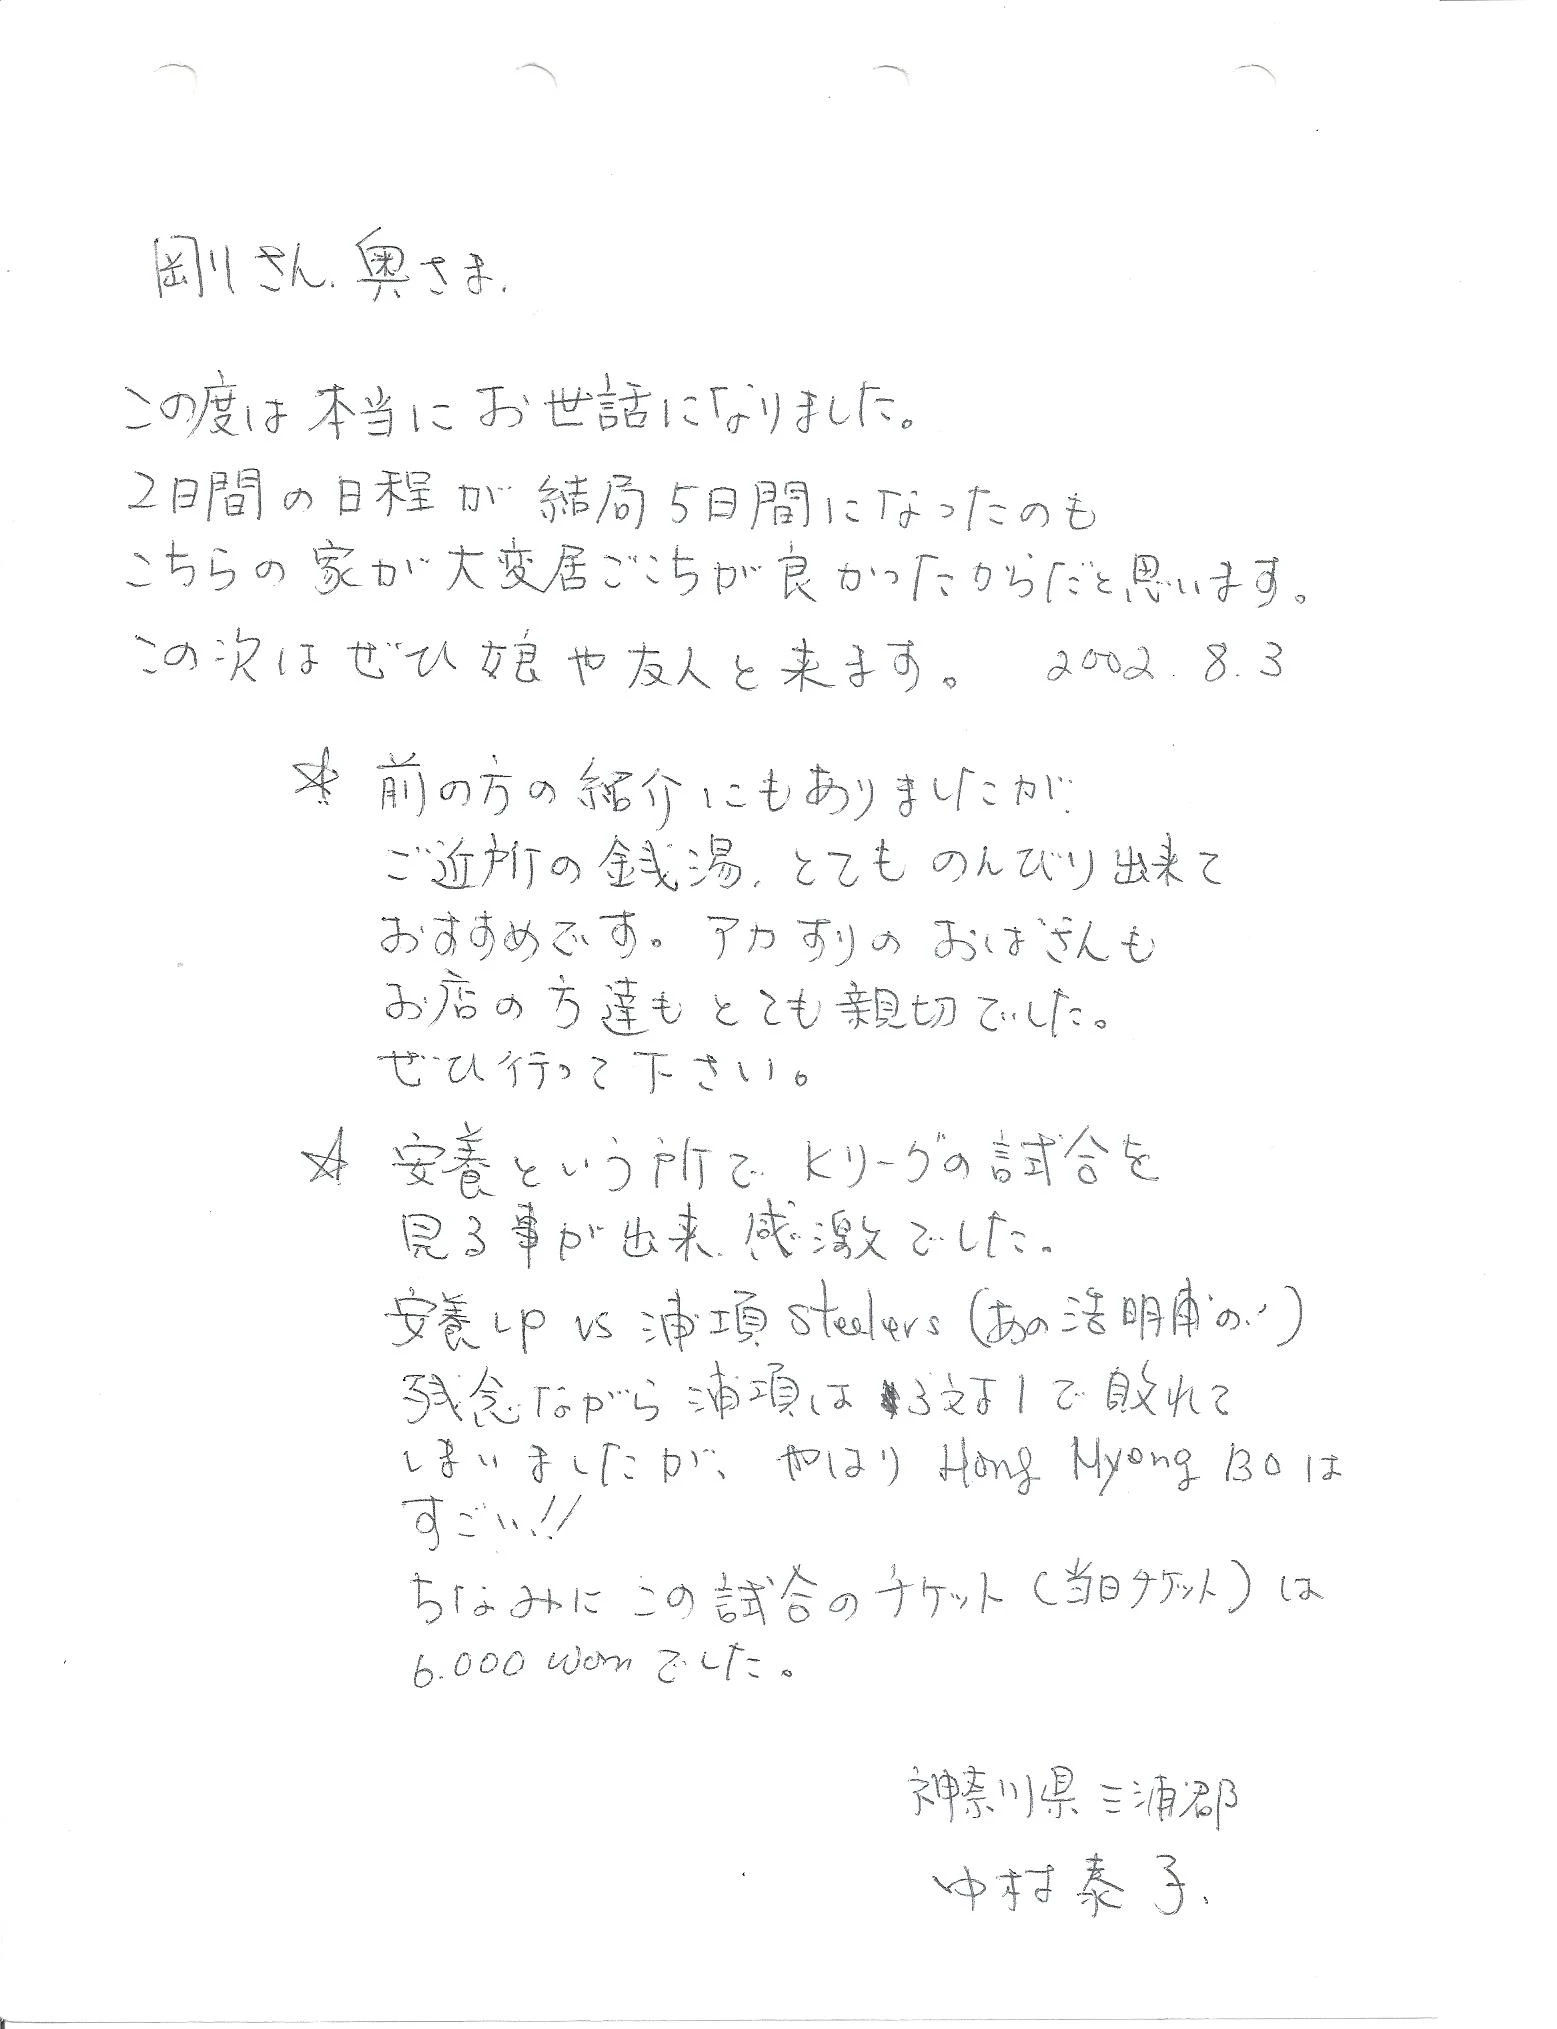 剛さん、奥さま、
この度は本当にお世話になりました。
2日間の日程が結局5日間になったのも
こちらの家が大変居ごこちが良かったからだと思います。
この次はぜひ娘や友人と来ます。 2002. 8. 3
☆ 前の方の紹介にもありましたが、
ご近所の銭湯、とてものんびり出来て
おすすめです。アカすりのおばさんも
お店の方達もとても親切でした。
ぜひ行って下さい。
☆ 安養という所でKリーグの試合を
見る事が出来、感激でした。
安養LP vs 浦項 Steelers (あの浩明甫の!)
残念ながら浦項は3対1で敗れて
しまいましたが、やはり Hong Myong BOは
すごい!!
ちなみにこの試合のチケット(当日チケット)は
6.000 wonでした。
神奈川県三浦郡
中村泰子.